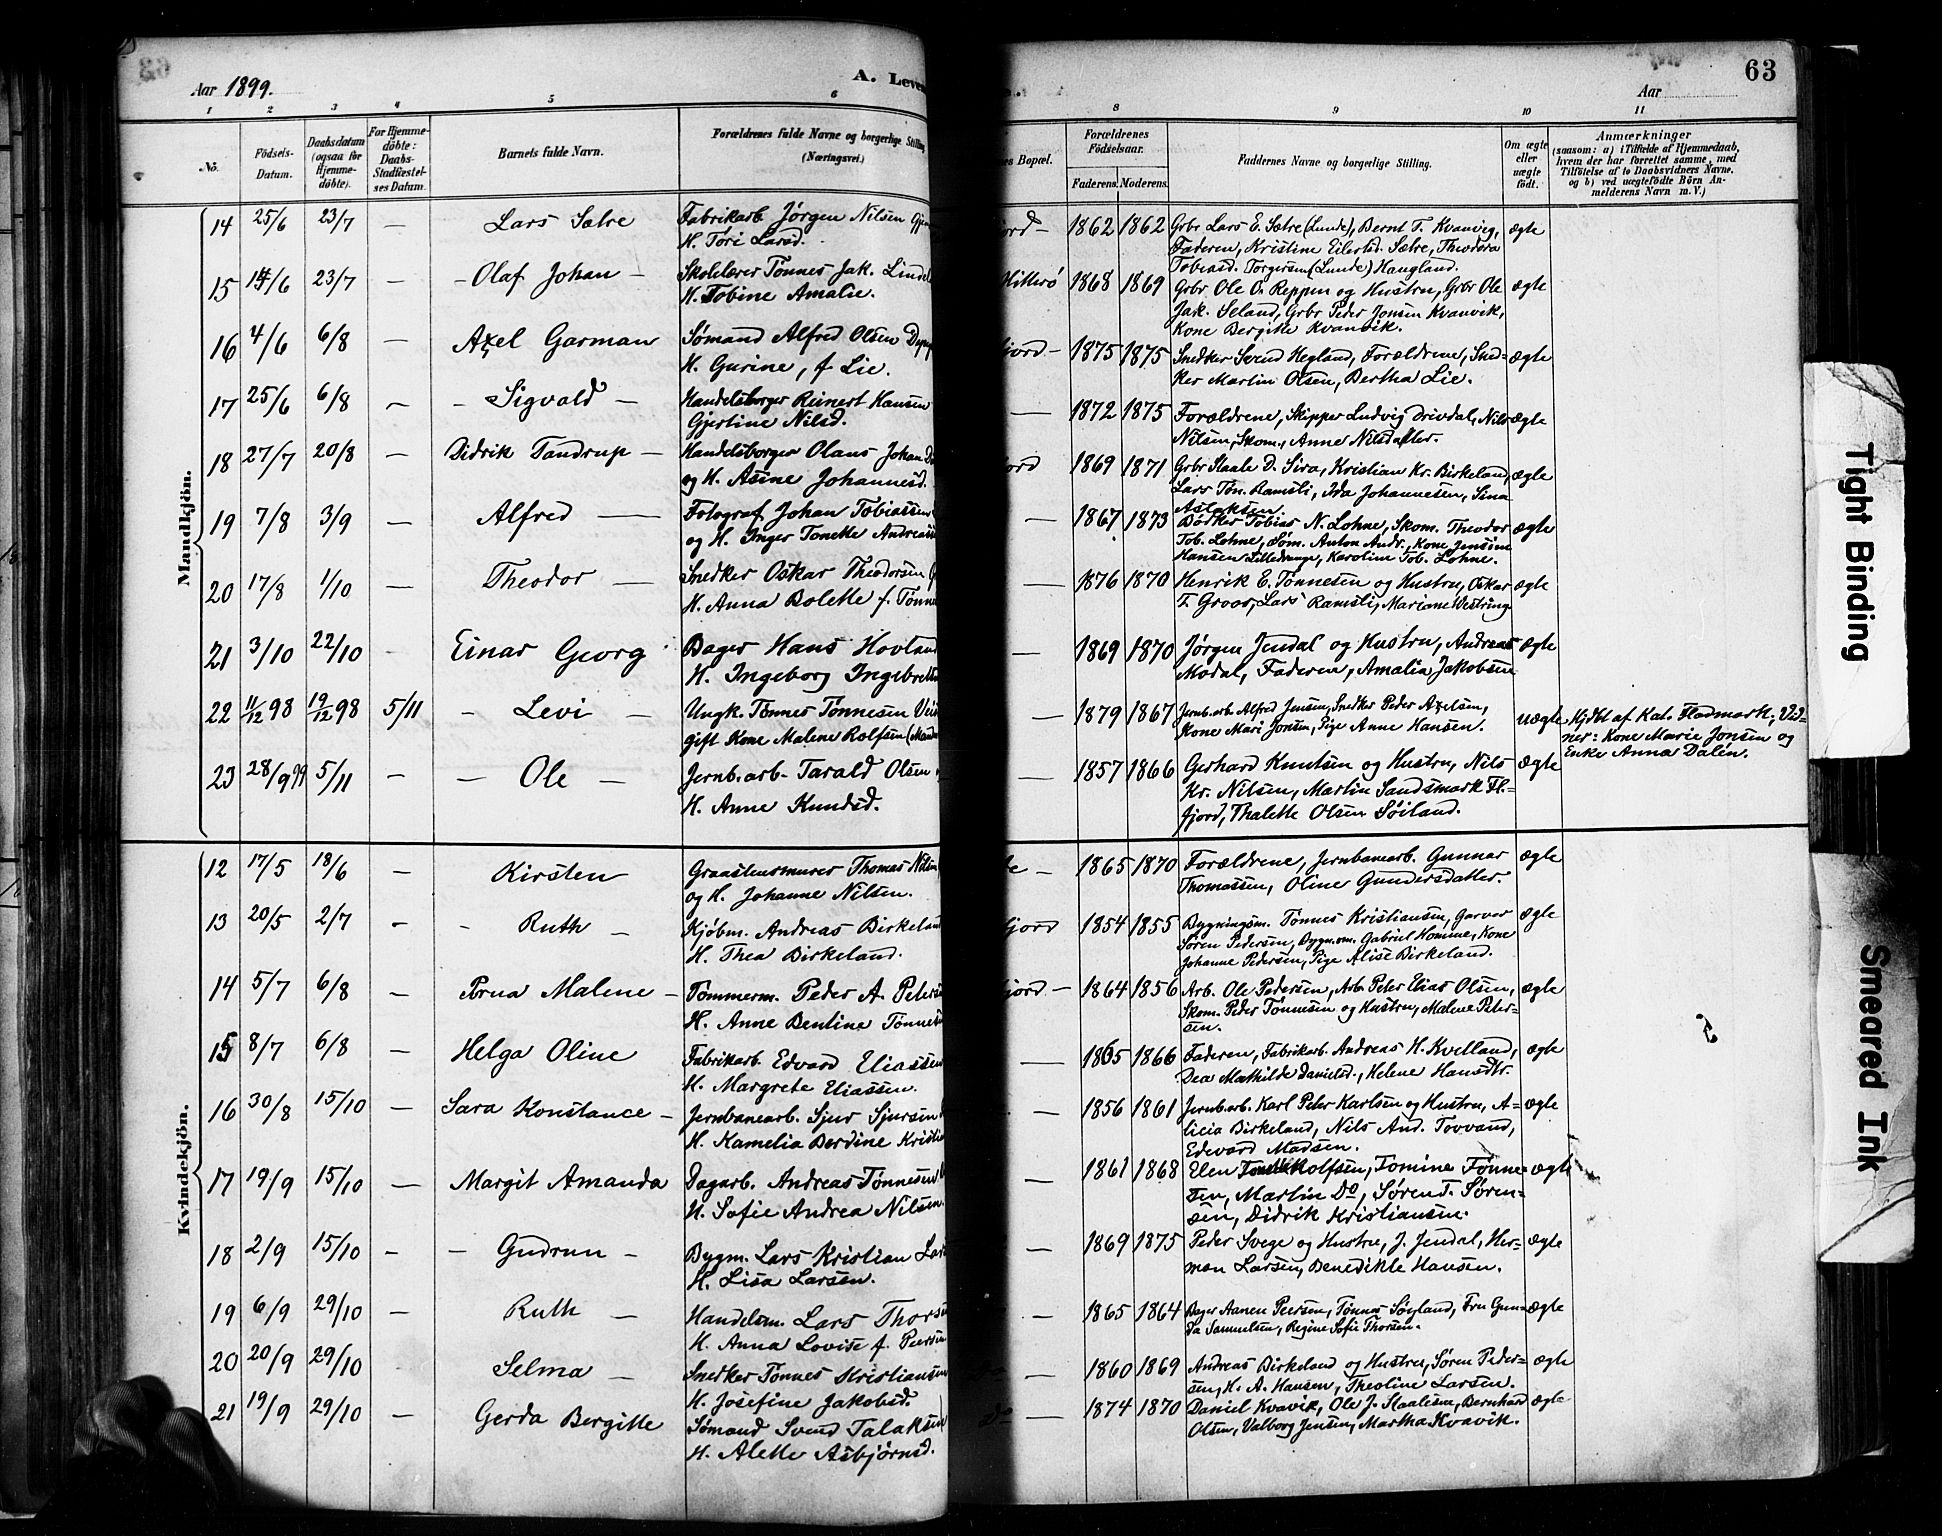 Aar 1899.
A. Leve
63
Aar
1 2 3 4 5 6 8 9 10 11
No.
Födsels-
Datum.
Daabsdatum
(ogsaa for
Hjemme-
döbte).
For Hjemme-
døbte:
Daabs-
Stadfæstel-
ses Datum.
Barnets fulde Navn.
Forældrenes fulde Navne og borgerlige Stilling
(Næringsvei.)
nes Bopæl.
Forældrenes
Födselsaar.
Faderens. Moderens.
Faddernes Navne og borgerlige Stilling.
Om ægte
eller
uægte
født.
Anmærkninger
(saasom: a) i Tilfælde af Hjemmedaab,
hvem der har forrettet samme, med
Tilföielse af to Daabsvidners Navne.
og b) ved uægtefödte Börn An-
melderens Navn m. V.)
Mandkjön.
14 25/6 23/7 — Lars Sætre Fabrikarb Jørgen Nilsen
H. Tori Larsd.
jord — 1862 1862 Grbr Lars E. Sætre (Lunde), Bernt T. Kvanvig, ægte
Faderen, Kristine Eilertsd. Sætre, Theodora
Tobiasd. Torgersen (Lunde) Haugland.
15 14/6 23/7 — - Olaf Johan — Skolelærer Tönnes Jak. Lindel
H. Tobine Amalie.
Hitterö 1868 1869 Grbr Ole O. Reppen og Hustru, Grbr Ole ægte
Jak. Seland, Grbr Peder Jonsen Kvanvik,
Kone Bergitte Kvanvik.
16 4/6 6/8 — Axel Garman Sømand Alfred Olsen
H. Gurine, f Lie.
fjord — 1875 1875 Snedker Svend Hegland, Forældrene, Sned- ægte
ker Martin Olsen, Bertha Lie.
17 25/6 6/8 — - Sigvald — Handelsborger Reinert Hansen
Gjertine Nilsd.
— 1872 1875 Forældrene, Skipper Ludvig Drivdal, Nils ægte
Nilsen, Skom., Anne Nilsdatter.
18 27/7 20/8 — Didrik Tandrup — Handelsborger Olaus Johan
og H. Asine Johannesd.
jord 1869 1871 Grbr Staale D. Sira, Kristian Kr. Birkeland, ægte
Lars Tön. Ramsli, Ida Johannesen, Sina
Aslaksen.
19 7/8 3/9 — Alfred — Fotograf Johan Tobiassen
og H. Inger Tonette Andreas
— 1867 1873 Bödker Tobias N. Lohne, Skom. Theodor ægte
Tob. Lohne, Söm. Anton Andr., Kone Jensine
Hansen Lilledrange, Karoline Tob. Lohne.
20 17/8 1/10 — Theodor — Snedker Oskar Theodorsen
H. Anna Bolette f. Tönne
— 1876 1870 Henrik E. Tønnesen og Hustru, Oskar ægte
T. Groos, Lars Ramsli, Mariane Westring
21 3/10 22/10 - Einar Georg Bager Hans Hovland
H. Ingeborg Ingebrett
— 1869 1870 Jørgen Jendal og Hustru, Andreas ægte
Modal, Faderen, Amalia Jakobsen
22 11/12 98 19/12 98 5/11 - Levi — Ungk. Tønnes Tønnesen
gift Kone Malene Rolfsen
— 1879 1867 Jernb.arb. Alfred Jensen, Snedker Peder Axelsen, uægte
Kone Mari Jonsen, Pige Anne Hansen.
Hjdbt af Kat. Flodmark; Vid-
ner: Kone Marie Jonsen og
Enke Anna Dalén.
23 28/9 99 5/11 — — Ole — Jernb.arb- Tarald Olsen
H. Anne Knudsd.
— 1857 1866 Gerhard Knutsen og Hustru, Nils ægte
Kr. Nilsen, Martin Sandsmark Fl-
fjord, Thalette Olsen Søiland.
Kvindekjön.
12 17/5 18/6 — Kirsten Graastensmurer Thomas Nilsen
og H. Johanne Nilsen.
— 1865 1870 Forældrene, Jernbanearb. Gunnar ægte
Thomassen, Oline Gundersdatter.
13 20/5 2/7 - - Ruth — Kjöbm. Andreas Birkeland
H. Thea Birkeland.
fjord 1854 1855 Bygningsm. Tönnes Kristiansen, Garver ægte
Sören Pedersen, Bygn.m. Gabriel Homme, Kone
Johanne Pedersen, Pige Alise Birkeland.
14 5/7 6/8 — Arna Malene — Tømmerm. Peder A. Peters
H. Anne Bentine Tönnes
fjord — 1864 1856 Arb. Ole Pedersen, Arb. Peter Elias Olsen, ægte
Skom. Peder Tönnesen og Hustru, Malene Peter-
sen.
15 8/7 6/8 — Helga Oline Fabrikarb. Edvard Eliassen
H. Margrete Eliassen.
— 1865 1866 Faderen, Fabrikarb. Andreas H. Kvelland, ægte
Dea Mathilde Danielsd., Helene Hansdtr.
16 30/8 15/10 — Sara Konstance — Jernbanearb. Sjur Sjursen
H. Kamelia Berdine Kristi
— 1856 1861 Jernb.arb. Karl Peter Karlsen og Hustru, A- ægte
licia Birkeland, Nils And. Tovvand,
Edvard Madsen.
17 19/9 15/10 — Margit Amanda Dagarb. Andreas Tønnesen
H. Sofie Andrea Nilsen.
— 1861 1868 Elen Rolfsen, Tomine Tønne- ægte
sen, Martin Do, Søren T. Søren-
sen, Didrik Kristiansen.
18 2/9 15/10 — — Gudrun — Bygm. Lars Kristian Lar
H. Lisa Larsen.
— 1869 1875 Peder Svege og Hustru, J. Jendal, Her- ægte
man Larsen, Benedikte Hansen.
19 6/9 29/10 — Ruth — Handelsm. Lars Thors
H. Anna Lovise f. Peersen
— 1865 1864 Bager Aanen Peersen, Tønnes Søyland, Fru Gun- ægte
da Samuelsen, Regine Sofie Thorsen.
20 20/9 29/10 — Selma — Snedker Tønnes Kristiansen
H. Josefine Jakobsd.
Do — 1860 1869 Andreas Birkeland og Hustru, Søren Peder- ægte
sen, H. A. Hansen, Theoline Larsen.
21 19/9 29/10 — Gerda Bergitte Sømand Svend Talaksen
H. Alette Asbjørnsd.
Do — 1874 1870 Daniel Kvavik, Ole J. Staalesen, Bernhard ægte
Olsen, Valborg Jensen, Martha Kvavik.
Tight Binding
Smeared Ink